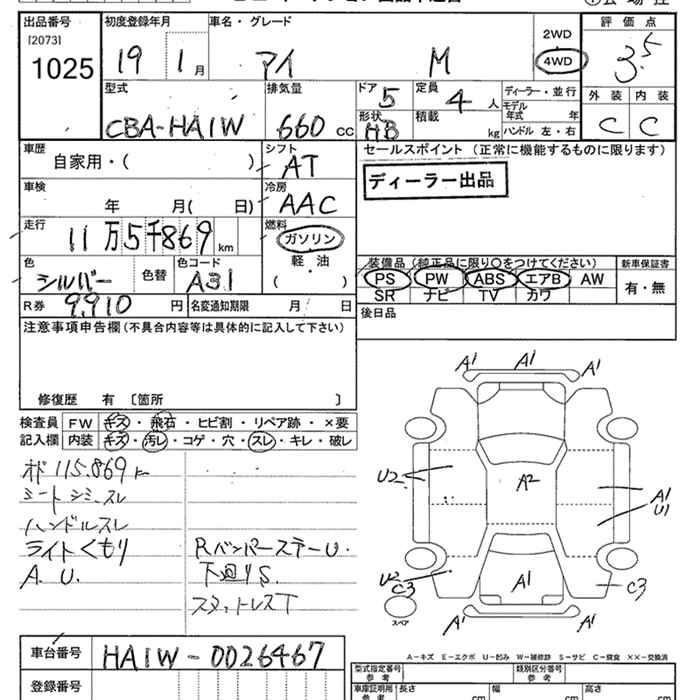 出品番号 [2073] 1025
初度登録年月 19 1月
車名・グレード アイ M
2WD
4WD
評価点 3.5
外装 内装
C C
型式 CBA-HA1W
排気量 660 CC
ドア 5
定員 4 人
形状 HB
積載 kg
ディーラー・並行
モデル年式 年
ハンドル 左・右
車歴 自家用・( )
シフト AT
セールスポイント (正常に機能するものに限ります)
ディーラー出品
車検 年 月( 日)
冷房 AAC
走行 11万5千869km
燃料 ガソリン
軽・油
( )
色 シルバー 色替
色コード A31
装備品 (純正品に限り○をつけてください)
PS PW ABS エアB AW
SR ナビ TV カワ
新車保証書
有・無
R券 9,910 円
名変通知期限 月 日
後日品
注意事項申告欄 (不具合内容等は具体的に記入して下さい)
修復歴 有 〔箇所 〕
検査員記入欄
FW キズ・飛石・ヒビ割・リペア跡・×要
内装 キズ・汚レ・コゲ・穴・スレ・キレ・破レ
115.869
シートシミ、スレ
ハンドルスレ
ライトくもり
A. U.
RバンパーステーU.
下廻りS.
スタットレスT
A1 A1 A1
U2 A2 A1
U1
U2
C3 A1 C3
A1 A1
スペア
車台番号 HA1W-0026467
登録番号
A-キズ E-エクボ U-凹み W-補修跡 S-サビ C-腐食 ××-交換済
型式指定番号 参考
類別区分番号 参考
車庫証明用 参考 長さ cm 幅 cm 高さ cm